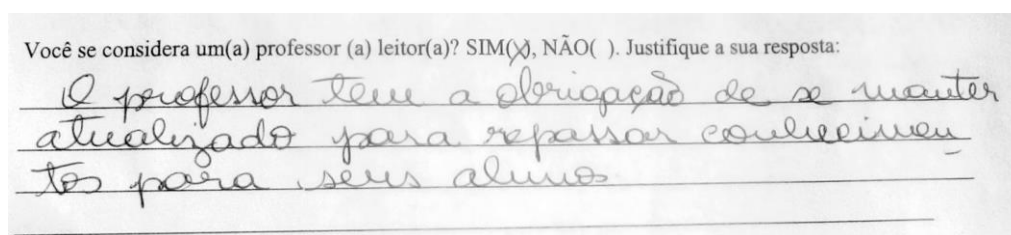 Você se considera um(a) professor (a) leitor(a)? SIM(X), NÃO( ). Justifique a sua resposta:
O professor tem a obrigação de se manter
atualizado para repassar conhecimen_
tos para seus alunos